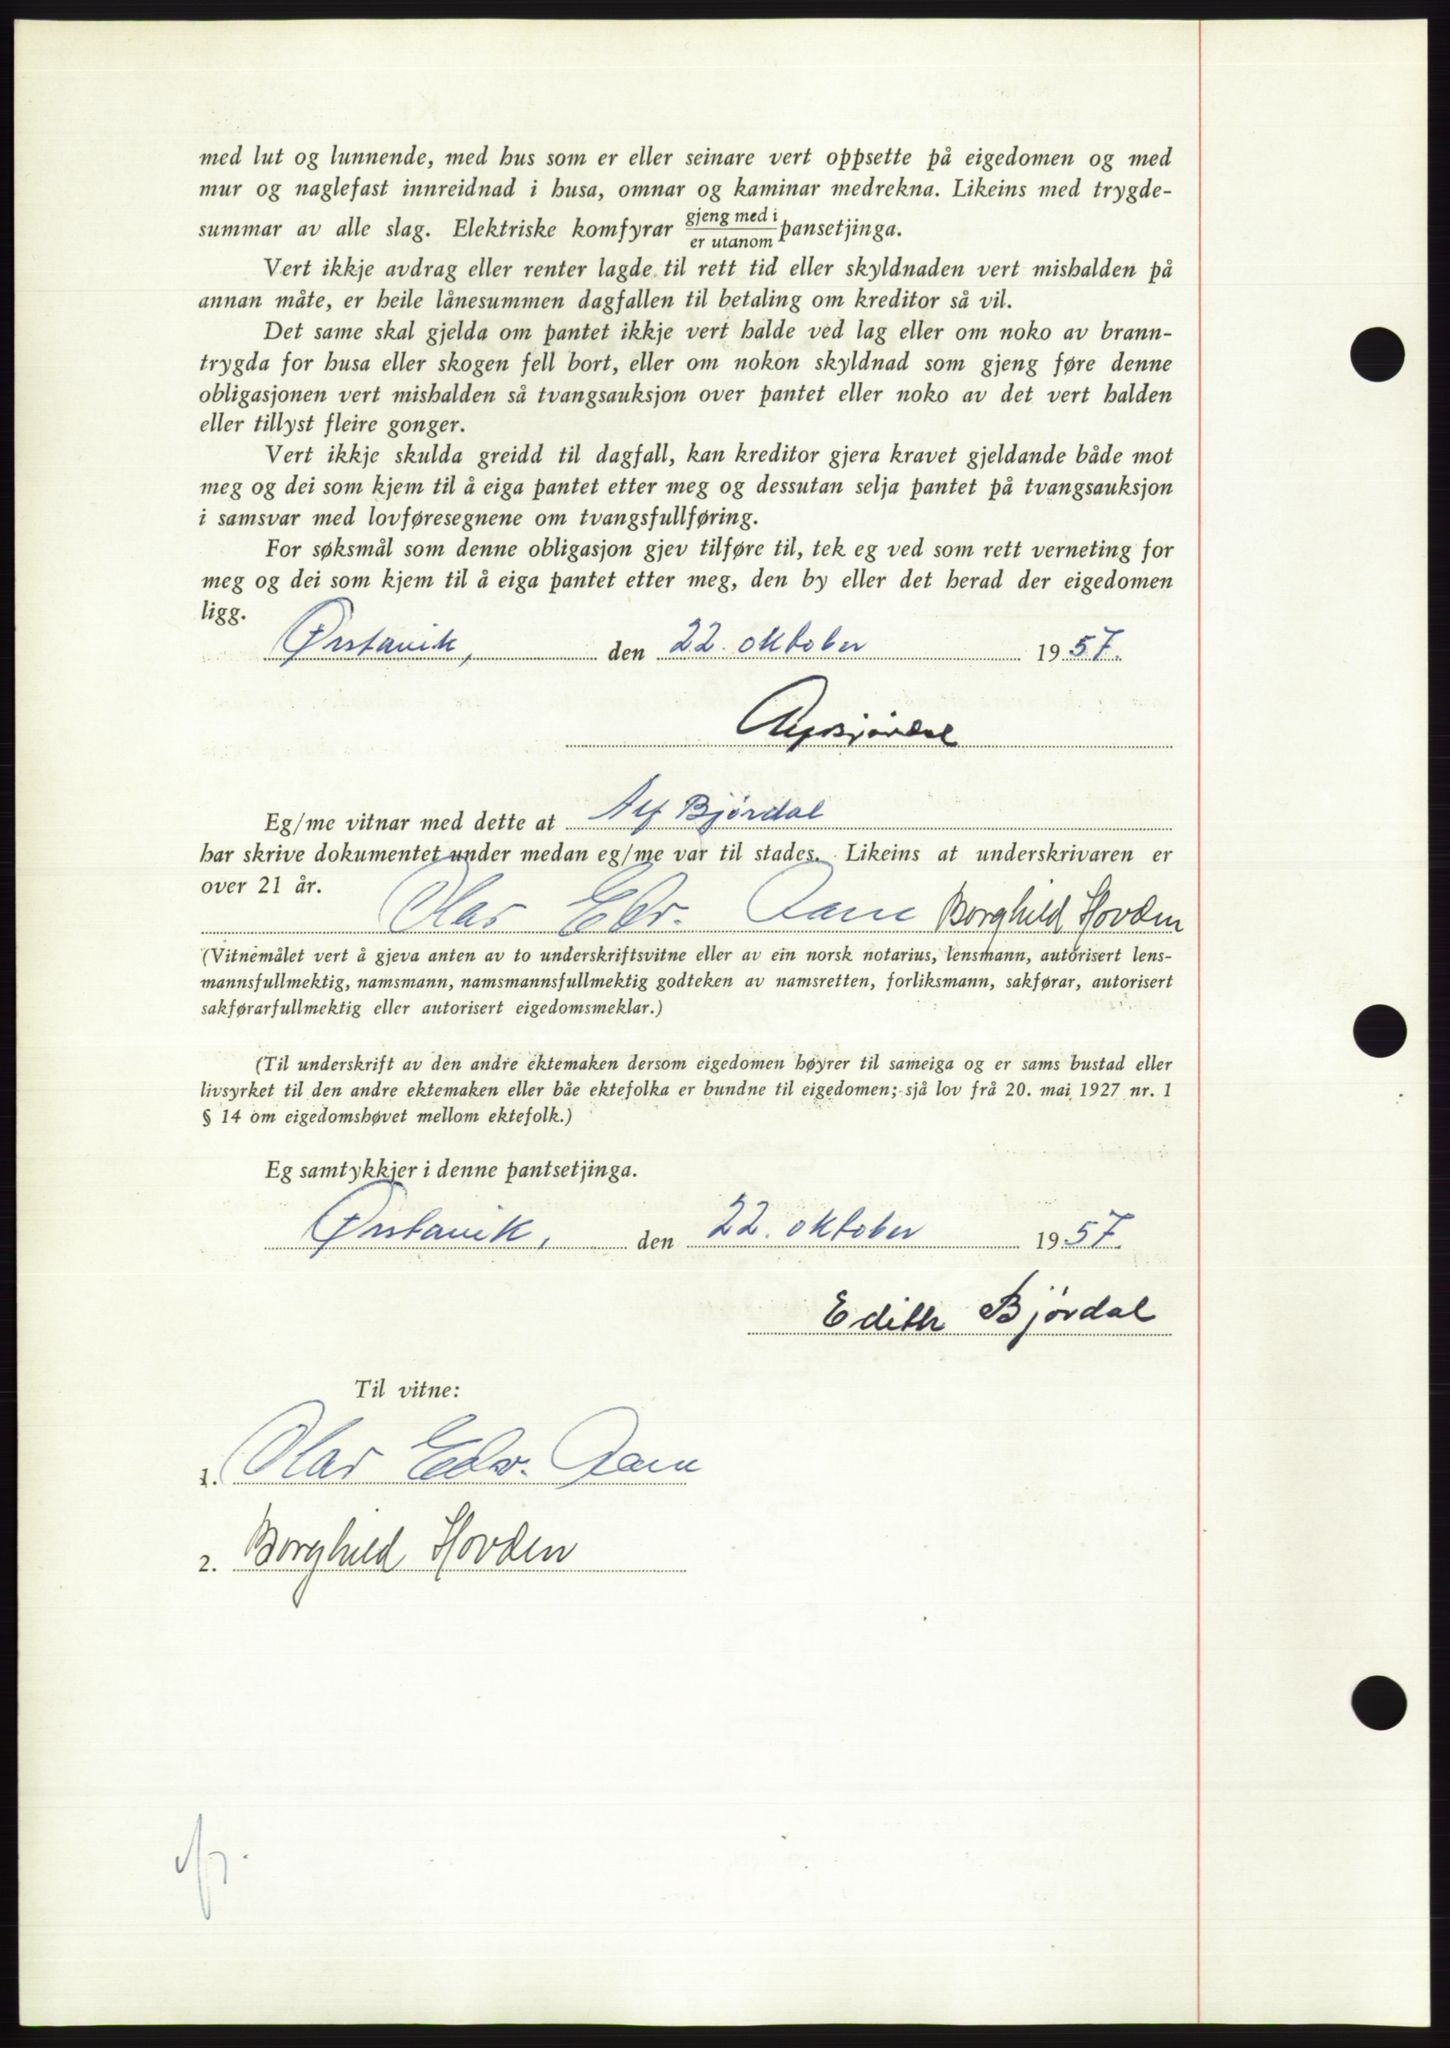 med lut og lunnende, med hus som er eller seinare vert oppsette på eigedomen og med
mur og naglefast innreidnad i husa, omnar og kaminar medrekna. Likeins med trygde-
summar av alle slag. Elektriske komfyrar gjeng med i / er utanom pansetjinga.
Vert ikkje avdrag eller renter lagde til rett tid eller skyldnaden vert mishalden på
annan måte, er heile lånesummen dagfallen til betaling om kreditor så vil.
Det same skal gjelda om pantet ikkje vert halde ved lag eller om noko av brann-
trygda for husa eller skogen fell bort, eller om nokon skyldnad som gjeng føre denne
obligasjonen vert mishalden så tvangsauksjon over pantet eller noko av det vert halden
eller tillyst fleire gonger.
Vert ikkje skulda greidd til dagfall, kan kreditor gjera kravet gjeldande både mot
meg og dei som kjem til å eiga pantet etter meg og dessutan selja pantet på tvangsauksjon
i samsvar med lovføresegnene om tvangsfullføring.
For søksmål som denne obligasjon gjev tilføre til, tek eg ved som rett verneting for
meg og dei som kjem til å eiga pantet etter meg, den by eller det herad der eigedomen
ligg.
Ørstavik, den 22. oktober 1957.
Alf Bjørdal
Eg/me vitnar med dette at Alf Bjørdal
har skrive dokumentet under medan eg/me var til stades. Likeins at underskrivaren er
over 21 år.
Olav Edv. Aam Borghild Hovden
(Vitnemålet vert å gjeva anten av to underskriftsvitne eller av ein norsk notarius, lensmann, autorisert lens-
mannsfullmektig, namsmann, namsmannsfullmektig godteken av namsretten, forliksmann, sakførar, autorisert
sakførarfullmektig eller autorisert eigedomsmeklar.)
(Til underskrift av den andre ektemaken dersom eigedomen høyrer til sameiga og er sams bustad eller
livsyrket til den andre ektemaken eller båe ektefolka er bundne til eigedomen; sjå lov frå 20. mai 1927 nr. 1
§ 14 om eigedomshøvet mellom ektefolk.)
Eg samtykkjer i denne pantsetjinga.
Ørstavik, den 22. oktober 1957.
Edith Bjørdal
Til vitne:
1. Olav Edv. Aam
2. Borghild Hovden